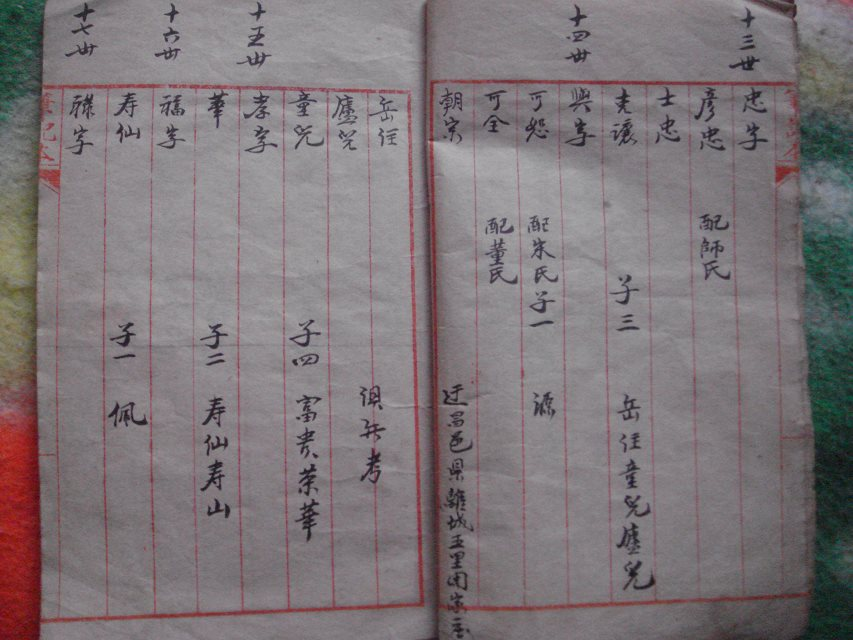 十三世
忠字
彦忠 配師氏
士忠
克讓 子三 岳住童児廬児
十四世
興字
可恕 配朱氏子一 源
可全 配董氏
朝宗 迁昌邑県離城五里周家
岳住
廬児 俱無考
童児 子四 富贵荣華
十五世
孝字
華 子二 寿仙寿山
十六世
福字
寿仙 子一 佩
十七世
祿字